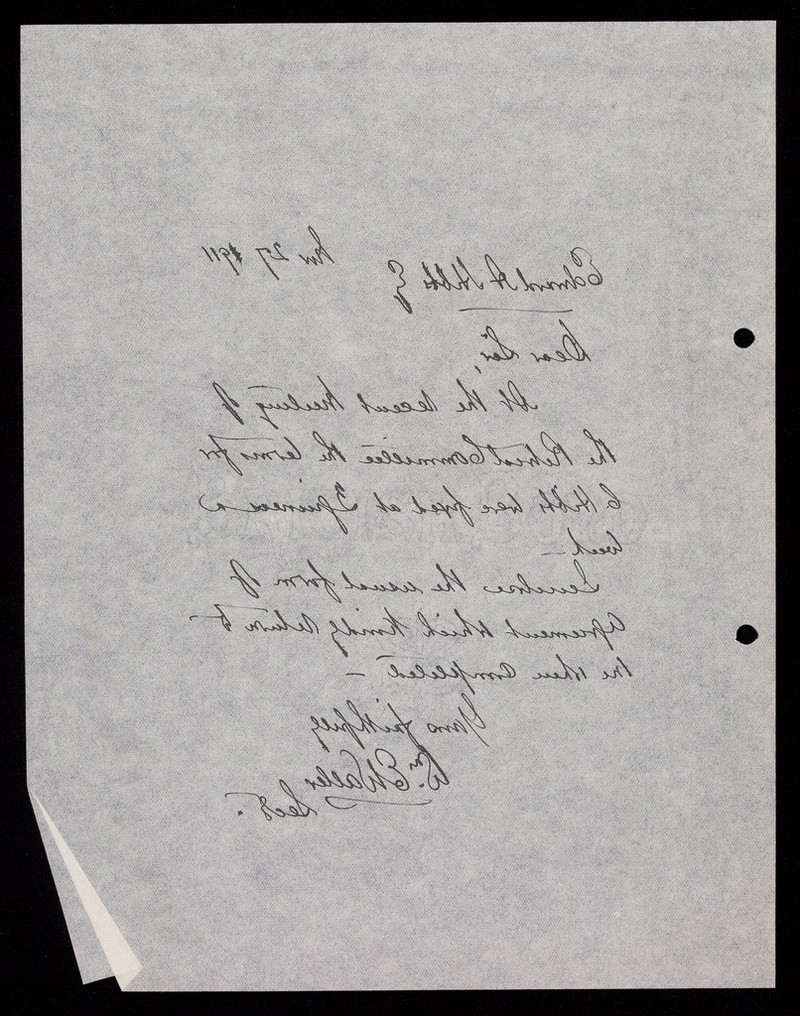 27 1911
Edward A Hibbs Esq
Dear Sir,
At the recent meeting of
the Retreat Committee the terms for
E Hibbs were fixed at 3 guineas a
week —
I enclose the usual form of
agreement which kindly return to
me when completed —
Yours faithfully
Wm. E Waller
Secy.